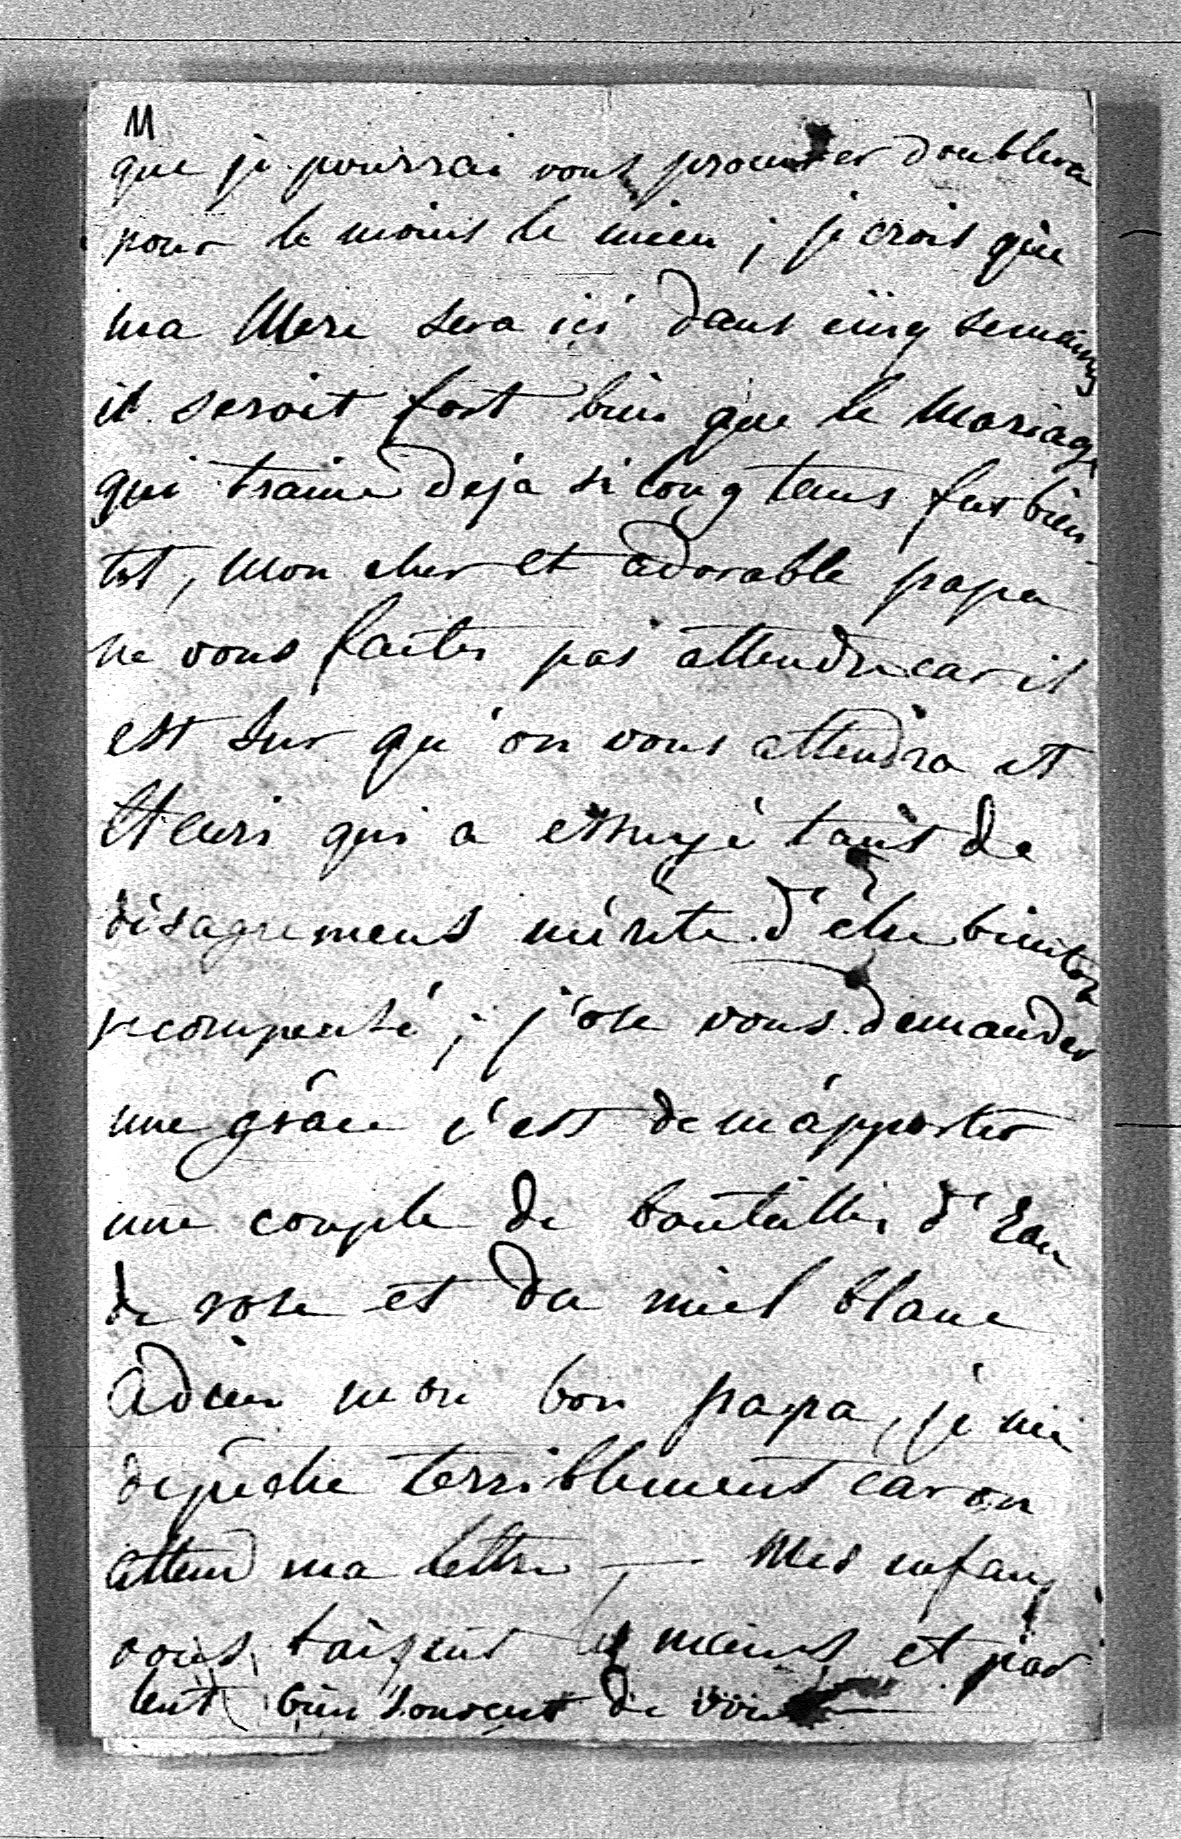 M
que je pourrai vous procurer doublera
pour le moins le mien ; je crois que
ma Mere sera içi dans cinq semaines
il seroit fort bien que le Mariage
qui traine deja si long tems fut bien-
tot, Mon cher et adorable papa
ne vous faites pas attendre car il
est sur qu'on vous attendra et
Henri qui a essuyé tant de
désagremens mérite d'être bientot
recompensé ; j'ose vous demander
une grâce c'est de m'apporter
une couple de boutailles d'Eau
de rose et du miel blanc
Adieu mon bon papa, je me
depêche terriblement car on
attend ma lettre — Mes enfans
vous baisent les mains et par
lent bien souvent de vous